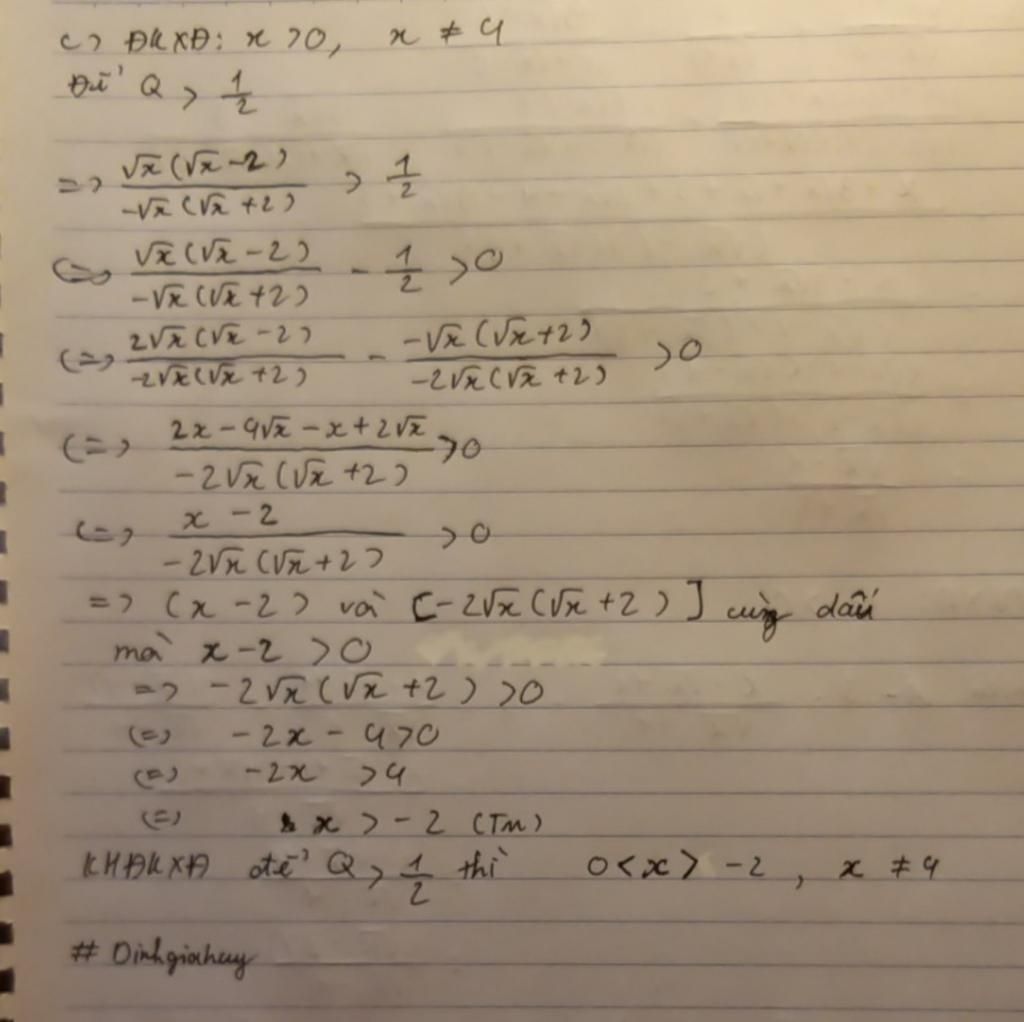 c) ĐKXĐ: x > 0, x ≠ 4
Để Q > 1/2
=> √x(√x - 2) / -√x(√x + 2) > 1/2
<=> √x(√x - 2) / -√x(√x + 2) - 1/2 > 0
<=> 2√x(√x - 2) / -2√x(√x + 2) - -√x(√x + 2) / -2√x(√x + 2) > 0
<=> 2x - 4√x - x + 2√x / -2√x(√x + 2) > 0
<=> x - 2 / -2√x(√x + 2) > 0
=> (x - 2) và [-2√x(√x + 2)] cùng dấu
mà x - 2 > 0
=> -2√x(√x + 2) > 0
<=> -2x - 4 > 0
<=> -2x > 4
<=> x > -2 (TM)
KHĐKXĐ để Q > 1/2 thì 0 < x > -2, x ≠ 4
# Dinhgiahuy